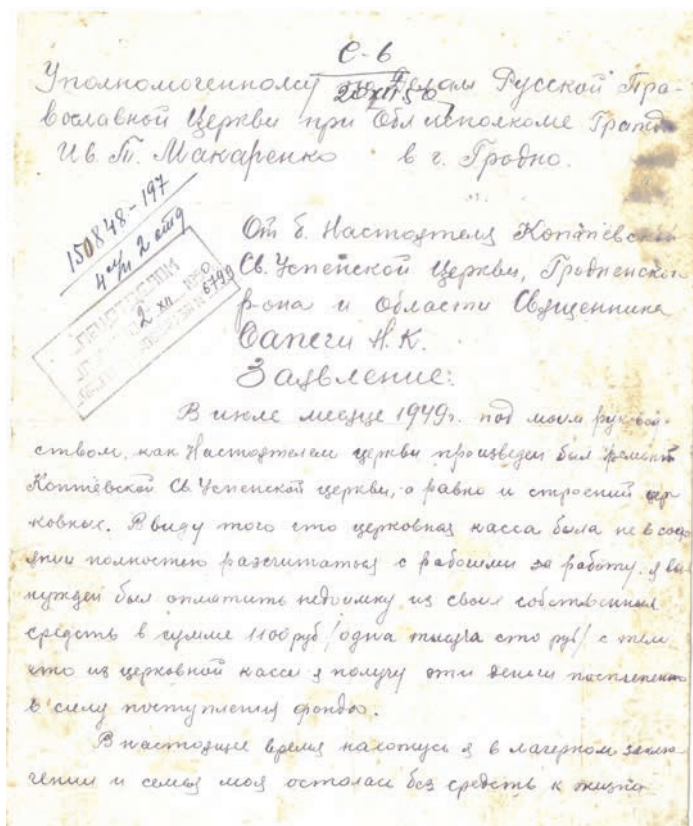 С-6
Уполномоченному по делам Русской Пра-
вославной Церкви при Облисполкоме Гражд.
Ив. Т. Макаренко в г. Гродно.
150848-197
2 отд
2 XII 6799
От б. Настоятеля Коптевской
Св. Успенской Церкви, Гродненского
р-она и области Священника
Сапеги Н.К.
Заявление:
В июле месяце 1949г. под моим руковод-
ством, как Настоятелем церкви произведен был ремонт
Коптевской Св. Успенской церкви, а равно и строений цер
ковных. Ввиду того что церковная касса была не в состо
янии полностью разсчитаться с рабочими за работу, я вы
нужден был оплатить недоимку из своих собственных
средств в сумме 1100 руб /одна тысяча сто руб/ с тем
что из церковной кассы я получу эти деньги постепенно
в силу поступления фондов.
В настоящее время нахожусь я в лагерном заклю
чении и семья моя осталась без средств к жизни